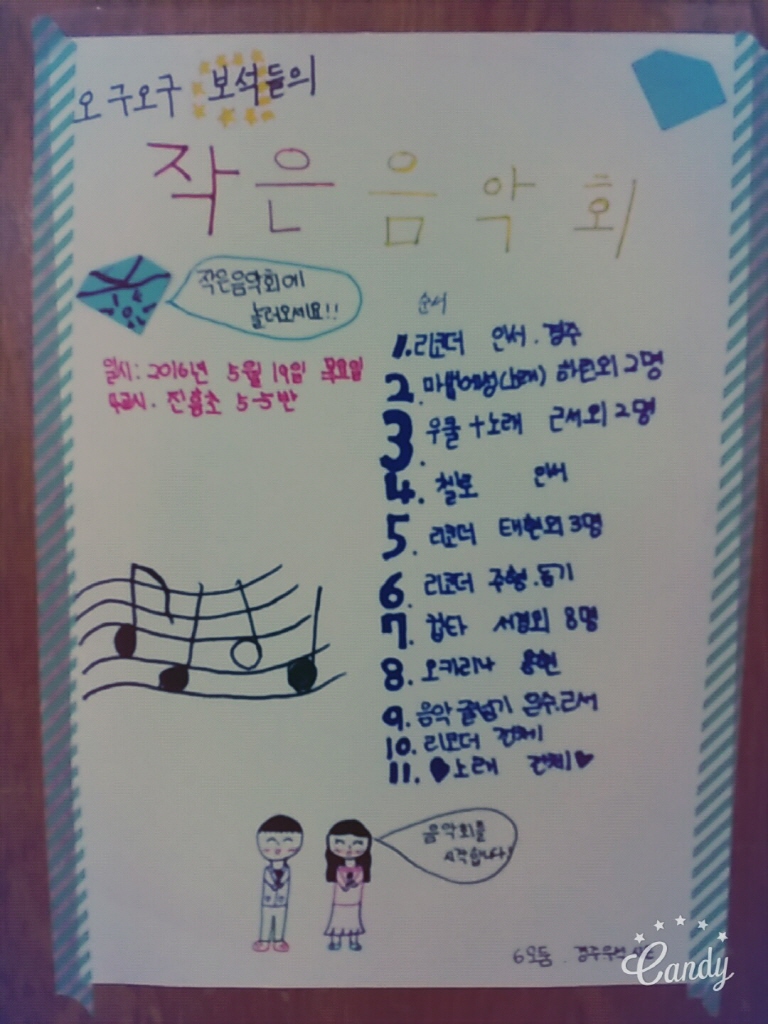 오구오구 보석들의
작은 음악회
작은음악회에
놀러오세요!!
일시: 2016년 5월 19일 목요일
진흥초 5-5반
순서
1. 리코더 인서. 경주
2. 하린외 2명
3. 우쿨+노래 근서외 2명
4. 첼로 인서
5. 리코더 태현외 3명
6. 리코더 주형.동기
7. 컵타 서경외 8명
8. 오카리나
9. 음악줄넘기 은수.근서
10. 리코더 전체
11. ♥노래 전체♥
음악회를
시작합니다!
6모둠.
Candy